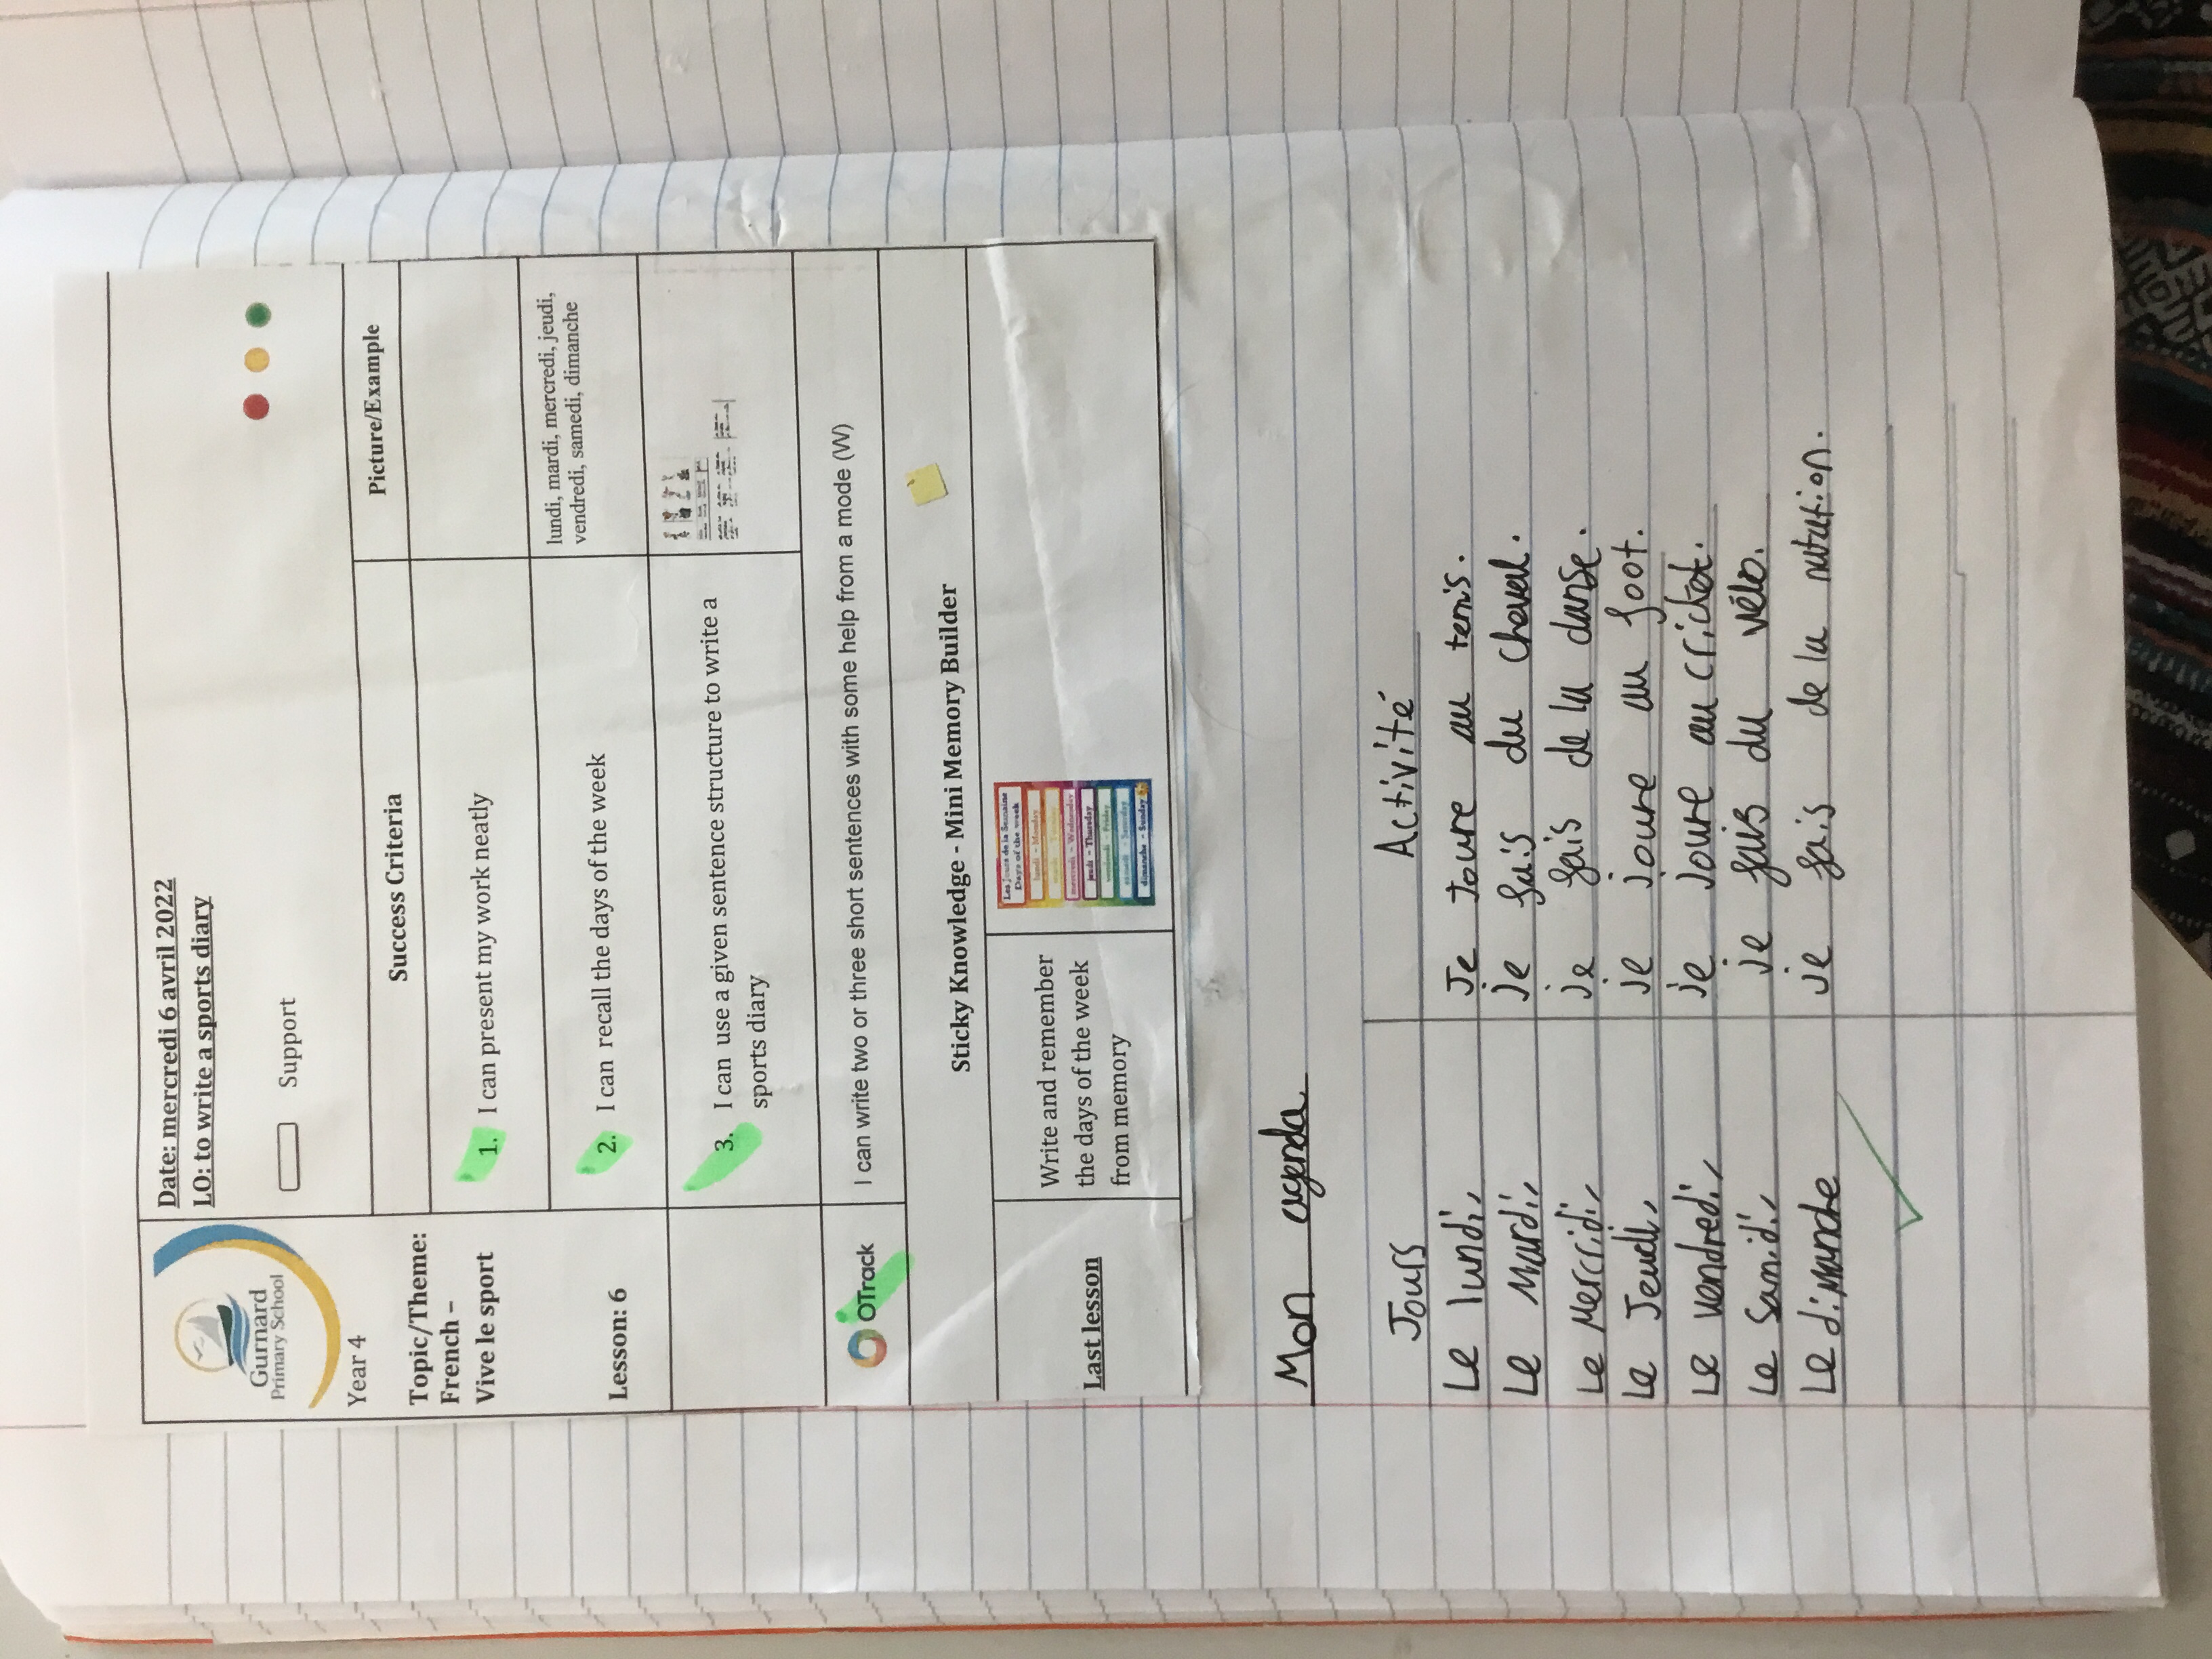 Gurnard
Primary School
Date: mercredi 6 avril 2022
LO: to write a sports diary
Support
Year 4
Topic/Theme:
French –
Vive le sport
Lesson: 6
Success Criteria
Picture/Example
1. I can present my work neatly
2. I can recall the days of the week
lundi, mardi, mercredi, jeudi,
vendredi, samedi, dimanche
3. I can use a given sentence structure to write a
sports diary
OTrack
I can write two or three short sentences with some help from a mode (W)
Sticky Knowledge - Mini Memory Builder
Last lesson
Write and remember
the days of the week
from memory
Les Jours de la Semaine
Days of the week
lundi - Monday
mercredi - Wednesday
jeudi - Thursday
vendredi - Friday
samedi - Saturday
dimanche - Sunday
Mon agenda
Jours Activité
Le lundi, Je Joure au tennis.
Le Mardi, je fais du cheval.
Le Mercridi, je fais de la danse.
Le Jeudi, je joure au foot.
Le vendredi, je Joure au cricket.
Le Samidi, je fais du vélo.
Le dimanche je fais de la natation.